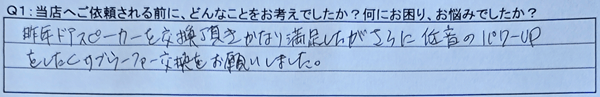 Q1:当店へご依頼される前に、どんなことをお考えでしたか？何にお困り、お悩みでしたか？
昨年ドアスピーカーを交換頂きかなり満足したがさらに低音のパワーUP
をしたくサブウーファー交換をお願いしました。